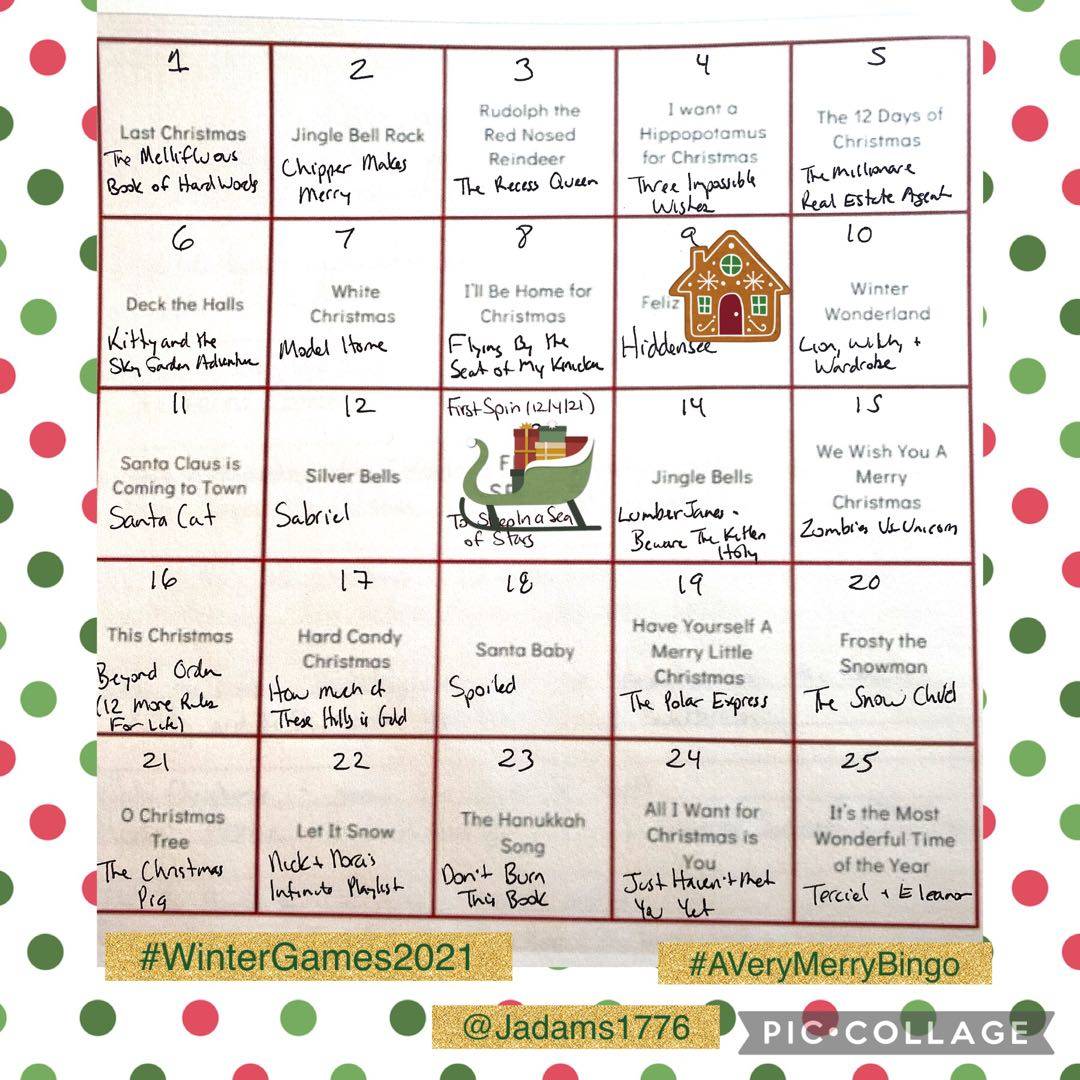 1
Last Christmas
The Mellifluous
Book of Hard Words
2
Jingle Bell Rock
Chipper Makes
Merry
3
Rudolph the
Red Nosed
Reindeer
The Recess Queen
4
I want a
Hippopotamus
for Christmas
Three Impossible
Wishes
5
The 12 Days of
Christmas
The Millionare
Real Estate Agent
6
Deck the Halls
Kitty and the
Sky Garden Adventure
7
White
Christmas
Model Home
8
I'll Be Home for
Christmas
Flying By the
Seat of My
9
Feliz
Hiddensee
10
Winter
Wonderland
Lion, Witch +
Wardrobe
11
Santa Claus is
Coming to Town
Santa Cat
12
Silver Bells
Sabriel
First Spin (12/4/21)
To Sleep In a Sea
of Stars
14
Jingle Bells
LumberJanes -
Beware The Kitten
Holy
15
We Wish You A
Merry
Christmas
Zombies Vs. Unicorn
16
This Christmas
Beyond Order
(12 More Rules
For Life)
17
Hard Candy
Christmas
How much of
These Hills is Gold
18
Santa Baby
Spoiled
19
Have Yourself A
Merry Little
Christmas
The Polar Express
20
Frosty the
Snowman
The Snow Child
21
O Christmas
Tree
The Christmas
Pig
22
Let It Snow
Nick + Nora's
Infinite Playlist
23
The Hanukkah
Song
Don't Burn
This Book
24
All I Want for
Christmas is
You
Just Haven't met
Ya Yet
25
It's the Most
Wonderful Time
of the Year
Terciel + Eleanor
#WinterGames2021
#AVeryMerryBingo
@Jadams1776
PIC•COLLAGE